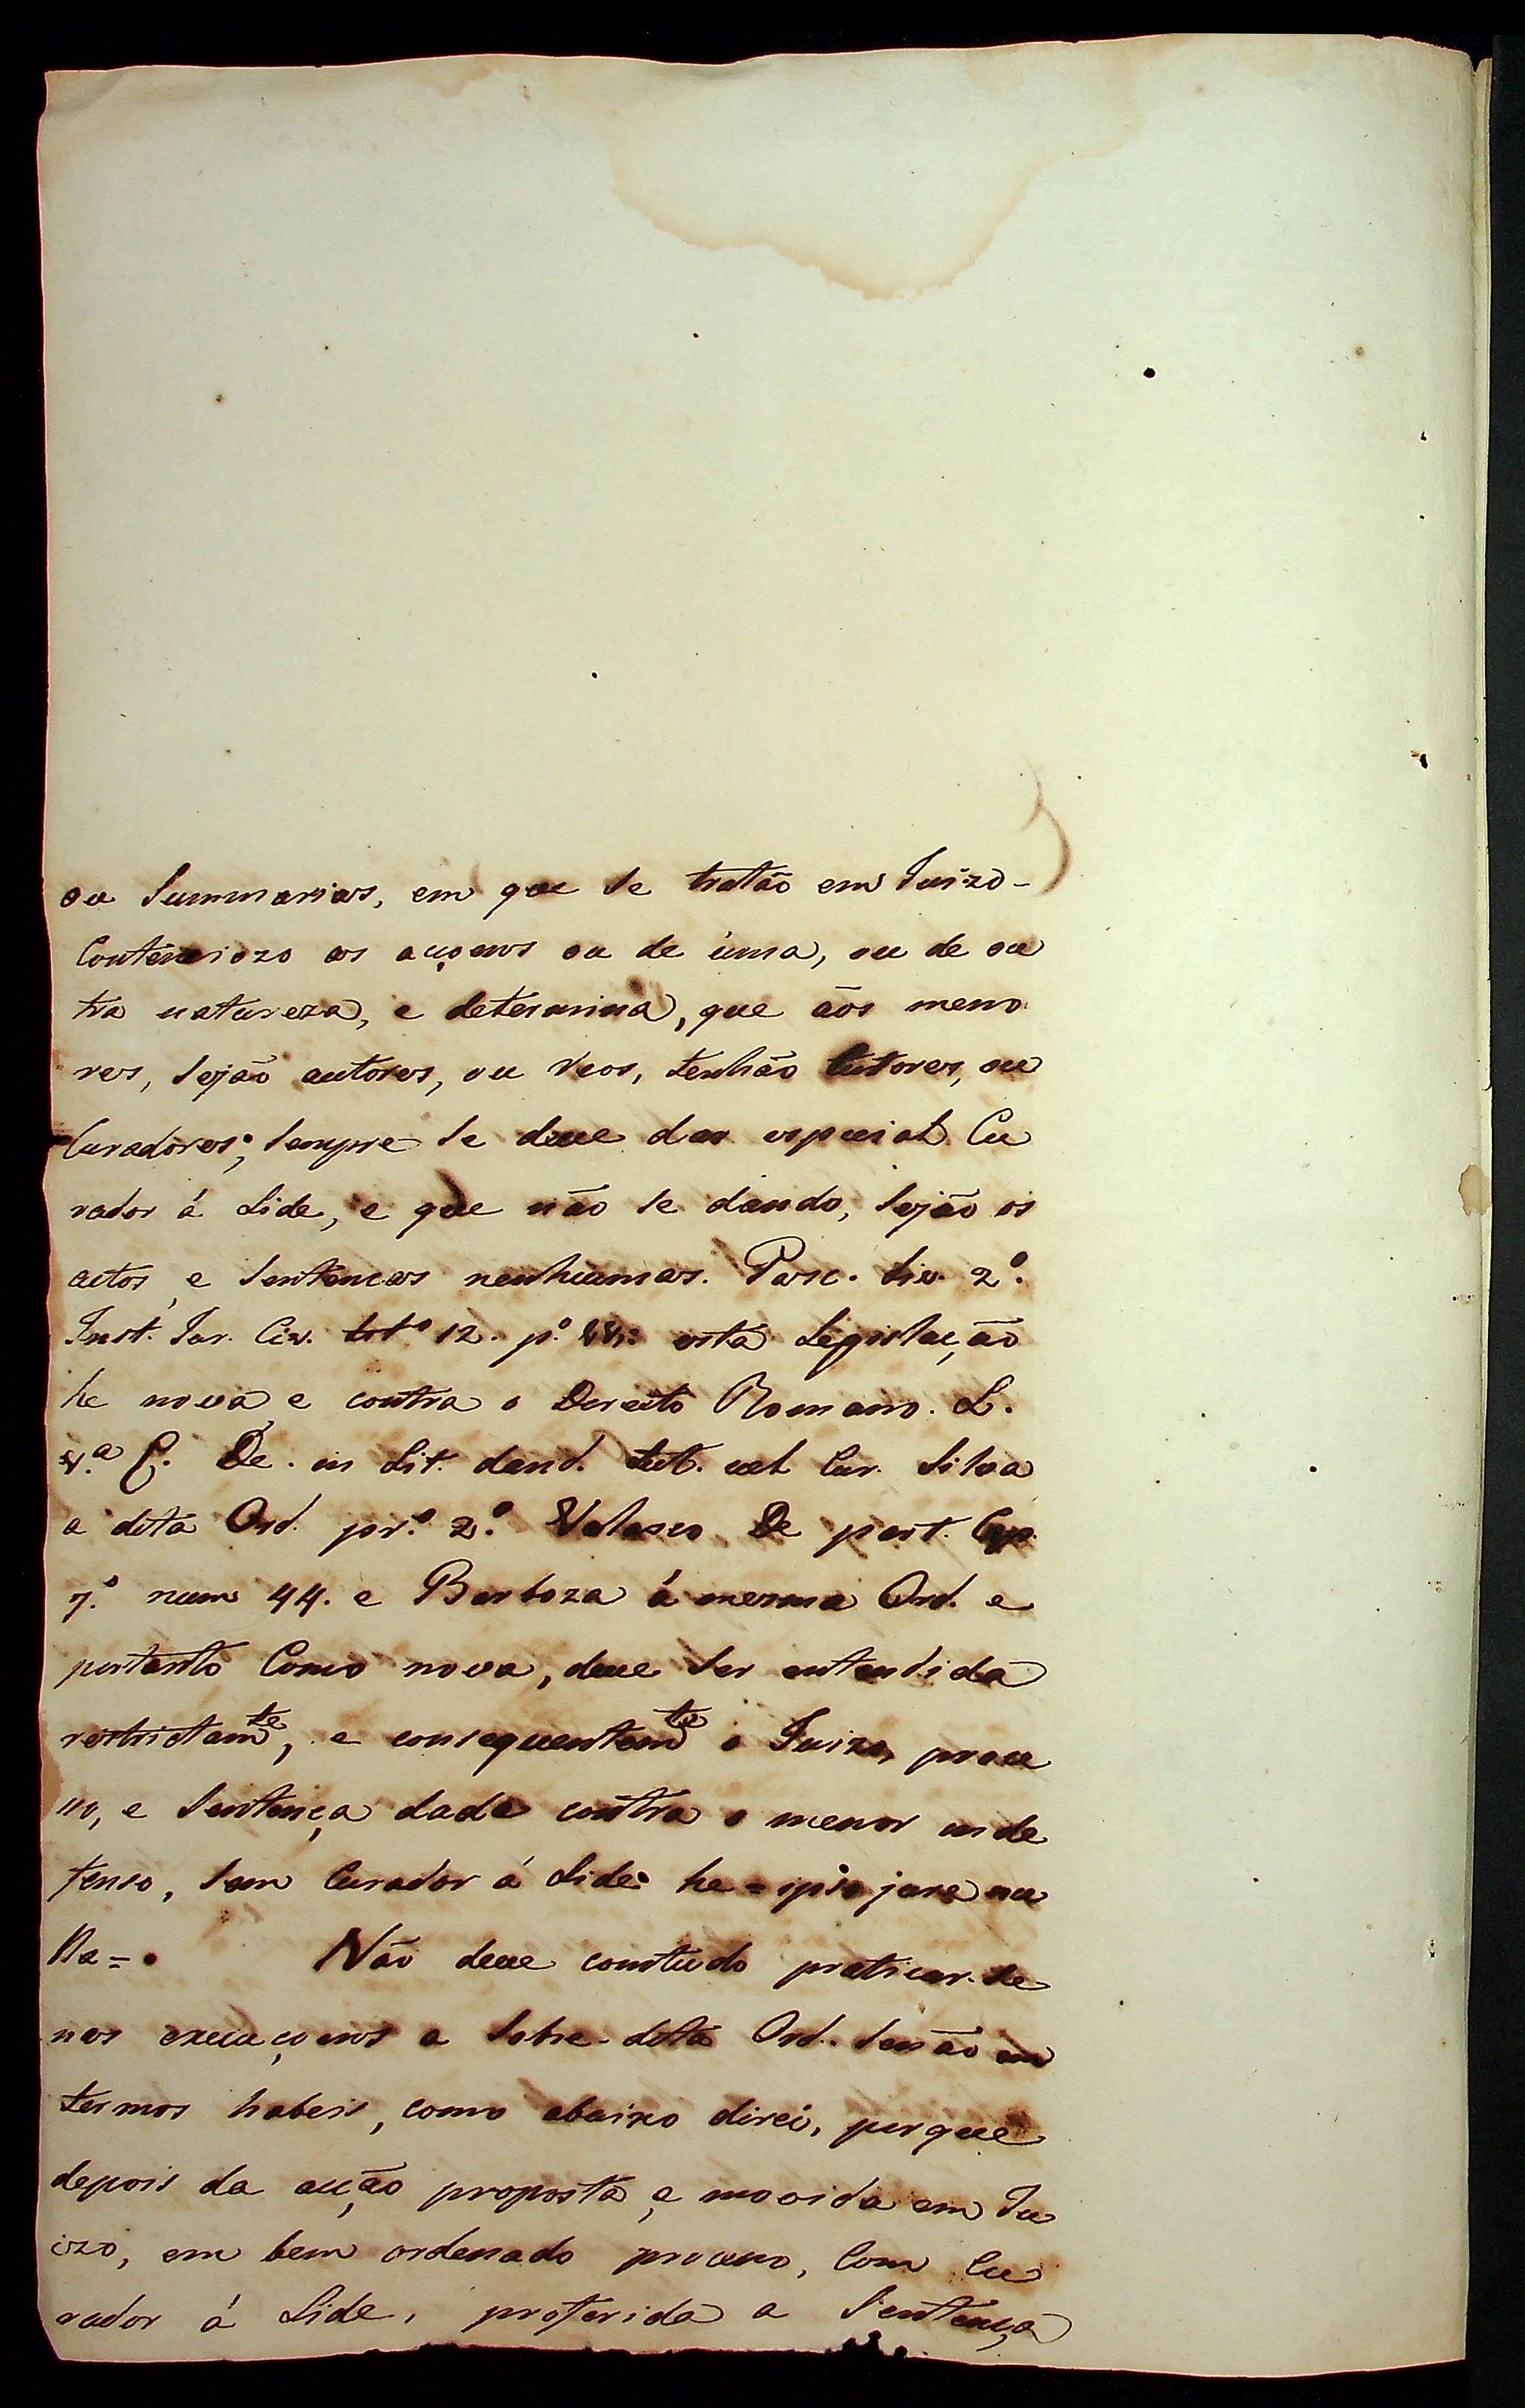 ou Summarias, em que se tratão em Juizo-
Contenciozo as acçoens ou de uma, ou de ou
tra natureza, e determina, que aos meno
res, sejão autores, ou Reos, tenhão tutores, ou
Curadores; sempre se deve dar especial Cu
rador á Lide, e que não se dando, sejão os
actos, e Sentencas nenhumas. Pasc. Liv. 2º.
Inst. Jur. Civ. tit.º 12. p.º esta Legislação
he nova, e contra o Dereito Romano. L.
4.ª C. De in Lit. dand. tut. vel Cur. Silva
a dita Ord. pr.º 2.º Valasco De part. Cap.
7.º num 44. e Barboza á mesma Ord. e
portanto Como nova, deve ser entendida
restrictamte, e consequentemte o Juizo, proce
sso, e Sentença dada contra o menor inde
fenso, sem Curador á Lide he = ipso jure nu
lla = . Não deve comtudo praticar-se
nas execuçoens a sobre-dita Ord. senão em
termos habeis, como abaixo direi, porque
depois da acção proposta, e movida em Ju
izo, em bem ordenado processo, Com Cu
rador á Lide, proferida a Sentença